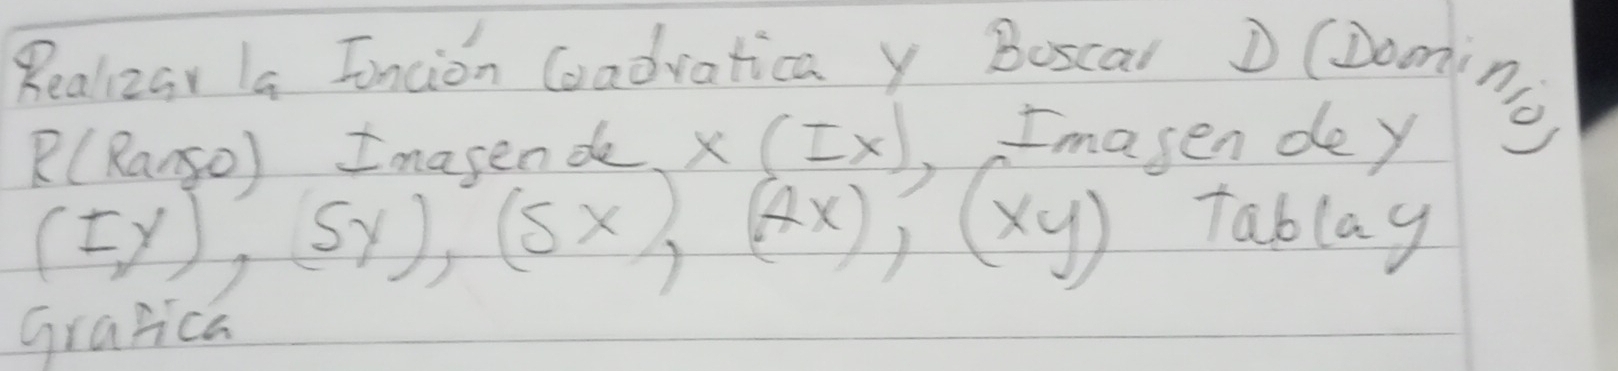 Realizar la Función Cuadratica y Buscar D (Dominio)
R(Rango) Imagen de x (Ix), Imagen de y
(Iy), (Sy), (Sx), (Ax), (xy) tabla y
Grafica